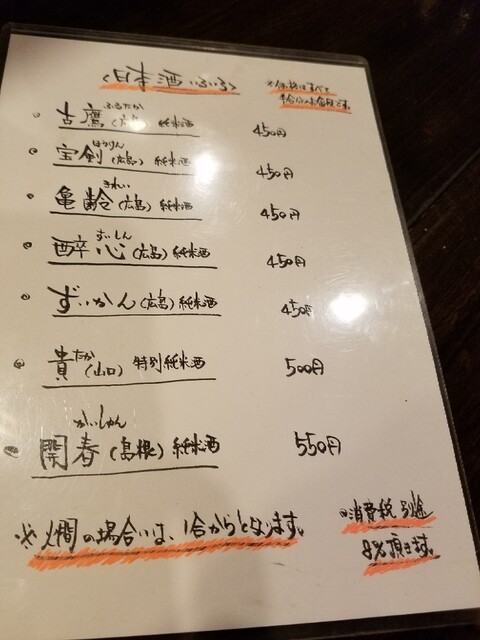 〈日本酒いろいろ〉
※価格はすべて
半合のお値段です。
ふるたか
古鷹(広島)純米酒 450円
ほうけん
宝剣(広島)純米酒 450円
きれい
亀齢(広島)純米酒 450円
すいしん
酔心(広島)純米酒 450円
ずいかん(広島)純米酒 450円
たか
貴(山口)特別純米酒 500円
かいしゅん
開春(島根)純米酒 550円
※人燗の場合いは、1合からとなります。
◎消費税 別途
8%頂きます。